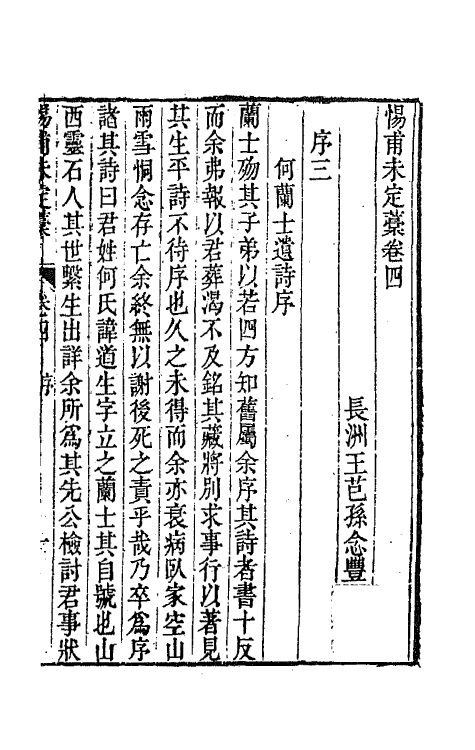 惕甫未定藁卷四
長洲王芑孫念豐
序三
何蘭士遺詩序
蘭士殤其子弟以若四方知舊屬余序其詩者書十反
而余弗報以君葬渴不及銘其藏將別求事行以著見
其生平詩不待序也久之未得而余亦衰病臥家空山
雨雪恫念存亡余終無以謝後死之責乎哉乃卒爲序
諸其詩曰君姓何氏諱道生字立之蘭士其自號也山
西靈石人其世繫生出詳余所爲其先公檢討君事狀
惕甫未定藁 卷四 序 一